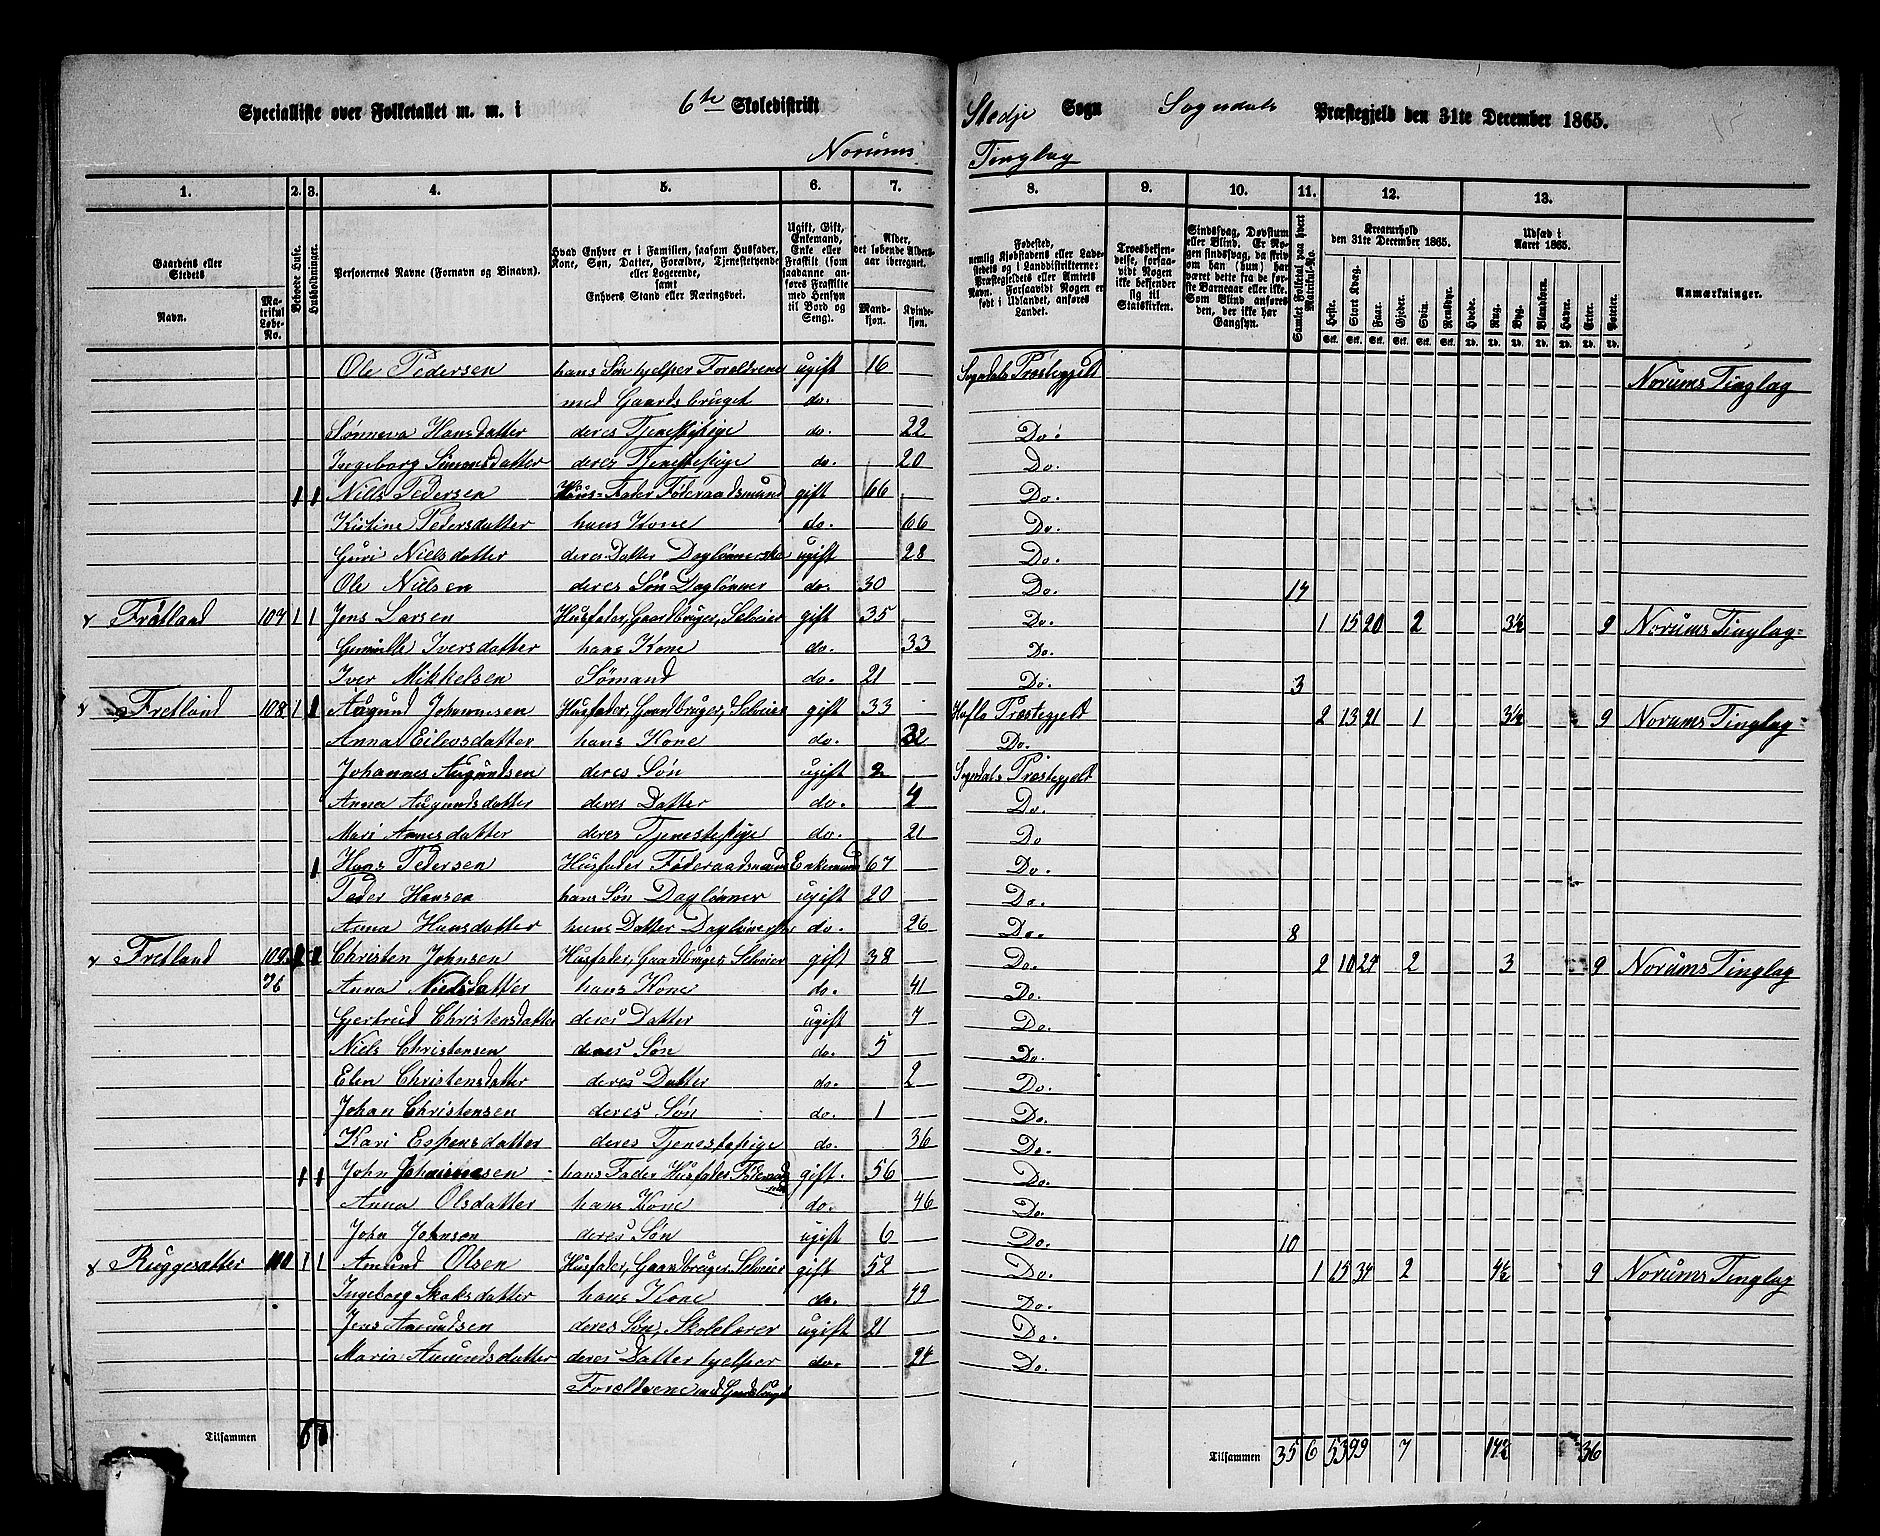 Specialliste over Folketallet m. m. i 6te Skoledistrikt Stedje Sogn Sogndals Præstegjeld den 31te December 1865.
Norums Tinglag
1. 2. 3. 4. 5. 6. 7. 8. 9. 10. 11. 12. 13.
Gaardens eller Stedets
Navn.
Matrikul Løbe-No.
Beboede Huse.
Husholdninger.
Personernes Navne (Fornavn og Binavn).
Hvad Enhver er i Familien, saasom Husfader, Kone, Søn, Datter, Forældre, Tjenestetyende eller Logerende, samt Enhvers Stand eller Næringsvei.
Ugift, Gift, Enkemand, Enke eller Fraskilt (som saadanne anføres Fraskilte med Hensyn til Bord og Seng).
Alder, det løbende Aldersaar iberegnet.
Mandkjøn. Kvindekjøn.
Fødested, nemlig Kjøbstadens eller Ladestedets og i Landdistrikterne: Præstegjeldets eller Amtets Navn. Forsaavidt Nogen er født i Udlandet, anføres Landet.
Troesbekjendelse, forsaavidt Nogen ikke bekjender sig til Statskirken.
Sindssvag, Døvstum eller Blind. Er Nogen sindssvag, da skrives om han (hun) har været dette fra de første Barneaar eller ikke. Som Blind anføres den, der ikke har Gangsyn.
Samlet Folketal paa hvert Matrikul-No.
Kreaturhold den 31te December 1865.
Heste. Stort Kvæg. Faar. Gjeder. Svin. Rensdyr.
Udsæd i Aaret 1865.
Hvede. Rug. Byg. Blandkorn. Havre. Erter. Poteter.
Anmærkninger.
Ole Pedersen hans Søn hjelper Forældrene ugift 16 Sogndals Præstegjeldt Norums Tinglag
med Gaardsbruget do.
Sønneva Hansdatter deres Tjenestepige do. 22 Do.
Ingeborg Simonsdatter deres Tjenestepige do. 20 Do.
1 1 Niels Pedersen Huus-Fader Føderaadsmand gift 66 Do.
Kirstine Pedersdatter hans Kone do. 66 Do.
Guri Nielsdatter deres Datter Daglønnerske ugift 28 Do.
Ole Nielsen deres Søn Daglønner do. 30 Do. 17
Frøtland 107 1 1 Jens Larsen Husfader, Gaardbruger, Selveier gift 35 Do. 1 15 20 2 3½ 9 Norums Tinglag
Gunnilde Iversdatter hans Kone do. 33 Do.
Iver Mikkelsen Sømand do. 21 Do. 3
Fretland 108 1 1 Augund Johannesen Husfader, Gaardbruger, Selveier gift 33 Hafslo Præstegjeldt 2 13 21 1 3½ 9 Norums Tinglag
Anna Eilevsdatter hans Kone do. 32 Do.
Johannes Augundsen deres Søn ugift 2 Sogndals Præstegjeldt
Anna Augundsdatter deres Datter do. 4 Do.
Mari Annesdatter deres Tjenestepige do. 21 Do
1 Hans Pedersen Husfader Føderaadsmand Enkemand 67 Do.
Peder Hansen hans Søn Daglønner ugift 20 Do.
Anna Hansdatter hans Datter do. 26 Do. 8
Fretland 109 1 1 Christen Johnsen Husfader, Gaardbruger, Selveier gift 38 Do. 2 10 24 2 3 9 Norums Tinglag
Anna Nielsdatter hans Kone do. 41 Do.
Gjertrud Christensdatter deres Datter ugift 7 Do.
Niels Christensen deres Søn do. 5 Do.
Elen Christensdatter deres Datter do. 2 Do.
Johan Christensen deres Søn do. 1 Do.
Kari Espensdatter deres Tjenestepige do. 36 Do.
1 1 John Johannesen hans Fader Husfader gift 56 Do.
Anna Olsdatter hans Kone do. 46 Do.
John Johnson deres Søn ugift 6 Do. 10
Ruggesætter 110 1 1 Amund Olsen Husfader, Gaardbruger, Selveier gift 52 Do. 1 15 34 2 4½ 9 Norums Tinglag
Ingeborg Skaksdatter hans Kone do. 49 Do.
Jens Amundsen deres Søn, Skolelærer ugift 21 Do.
Maria Amundsdatter deres Datter hjelper do. 24 Do.
Forældrene med Gardsbruget
Tilsammen 6 Tilsammen 35 6 53 99 7 14½ 36